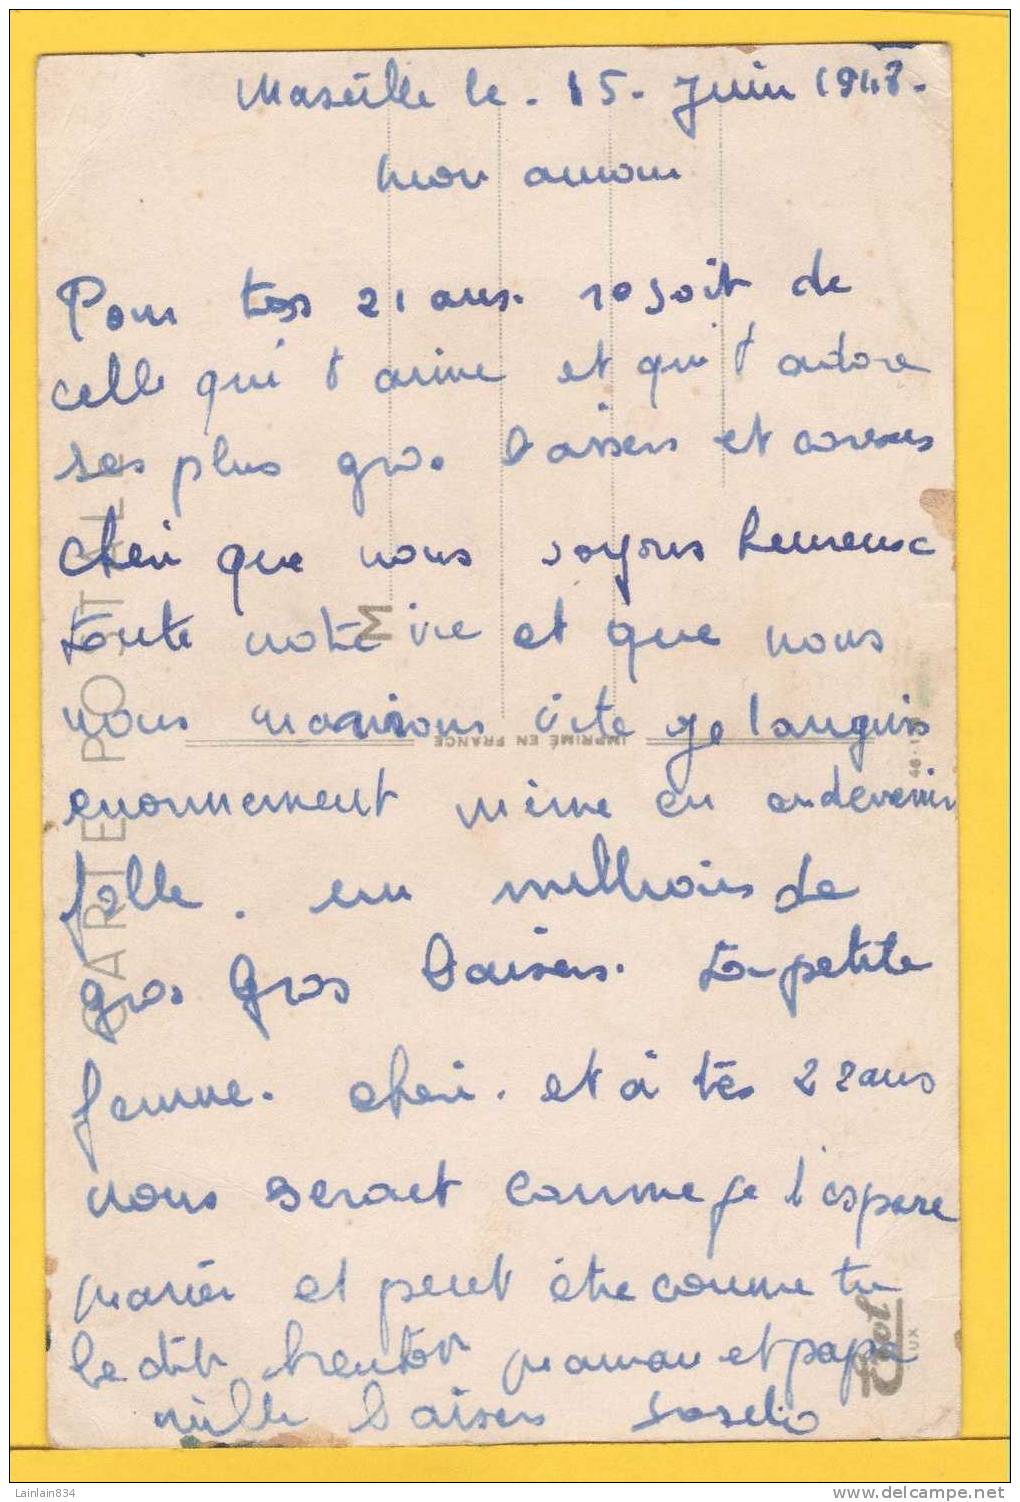 Marseille le - 15 - Juin 1948 -
Mon amour
Pour tes 21 ans. resoit de
celle qui t'aime et qui t'adore
ses plus gros baisers et caresses
cheri que nous soyons heureux
toute notre vie et que nous
nous marirons vite je languis
enormement même en devenir
folle. un millions de
gros Gros baisers. ta petite
femme. cheri. et à tes 22 ans
nous seront comme je l'espere
mariés et peut être comme tu
le dit bientôt maman et papa
mille baisers
CARTE POSTALE
IMPRIMÉ EN FRANCE
M
Lainlain834
www.delcampe.net